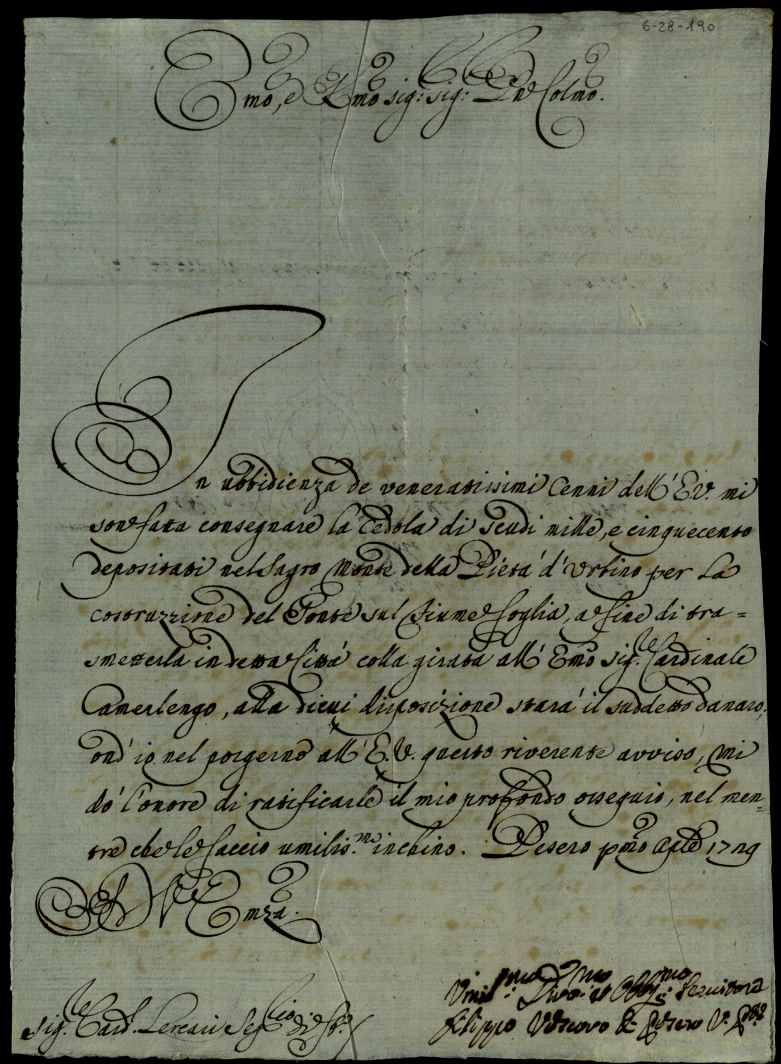 6-28-190
Emo, e Rmo sig: sig: Pne Colmo.
In ubbidienza de veneratissimi Cenni dell' E.V. mi
son fatta consegnare la Cedola di scudi mille, e cinquecento
depositati nel Sagro Monte della Pietà d'Urbino per la
costruzzione del Ponte sul Fiume Foglia, a fine di tra-
smetterla in detta Città colla girata all' Emo sig.r Cardinale
Camerlengo, alla di cui disposizione starà il suddetto danaro,
ond' io nel porgerne all' E.V. questo riverente avviso, mi
dò l'onore di ratificarle il mio profondo ossequio, nel men-
tre che le faccio umiliss.mo inchino. Pesero pmo Aple 1729
Di V. Emza.
sig.r Card. Lercari Seg.rio di Sto./
Umil.mo Divo. et Obbl.mo Servitore
Filippo Vescovo di Pesero V. P.